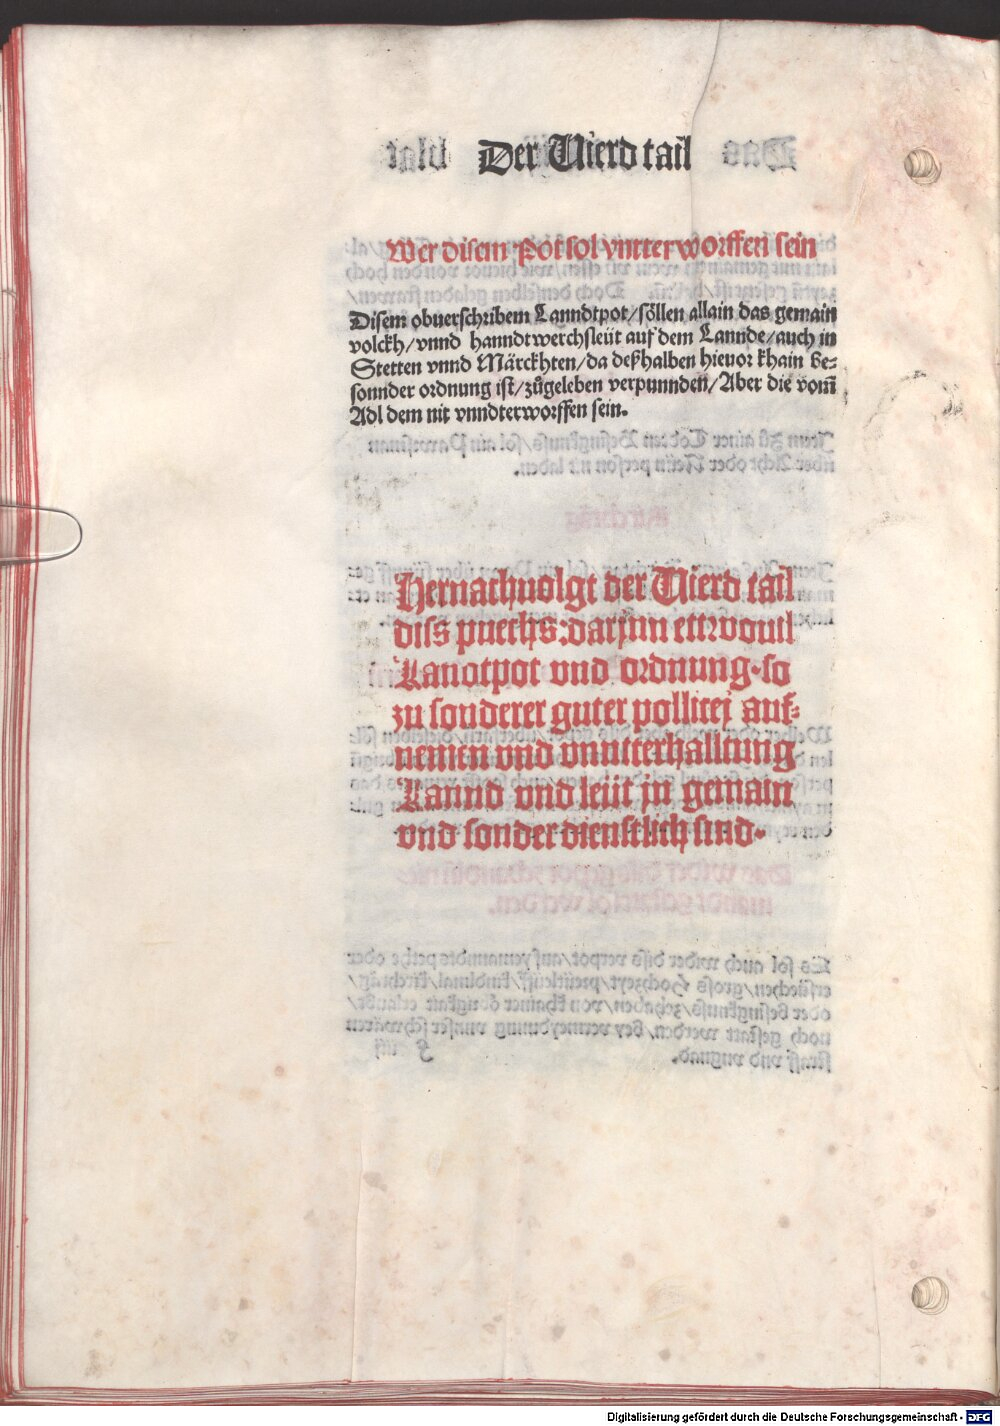 Der Vierd tail
Wer disem Pot sol vntterworffen sein
Disem obuerschribem Lanndtpot/söllen allain das gemain
volckh/vnnd hanndtwerchsleüt auf dem Lannde/auch in
Stetten vnnd Märckhten/da deßhalben hieuor khain be-
sonnder ordnung ist/zůgeleben verpunnden/Aber die vom̄
Adl dem nit vnndterworffen sein.
Hernachuolgt der Vierd tail
diss puechs: darjnn ettwouil
Lanotpot vnd ordnung. so
zu sonderer guter pollicej auf-
nemen vnd vnntterhalltung
Lannd vnd leüt jn gemain
vnd sonder dienstlich sind.
Digitalisierung gefördert durch die Deutsche Forschungsgemeinschaft - DFG